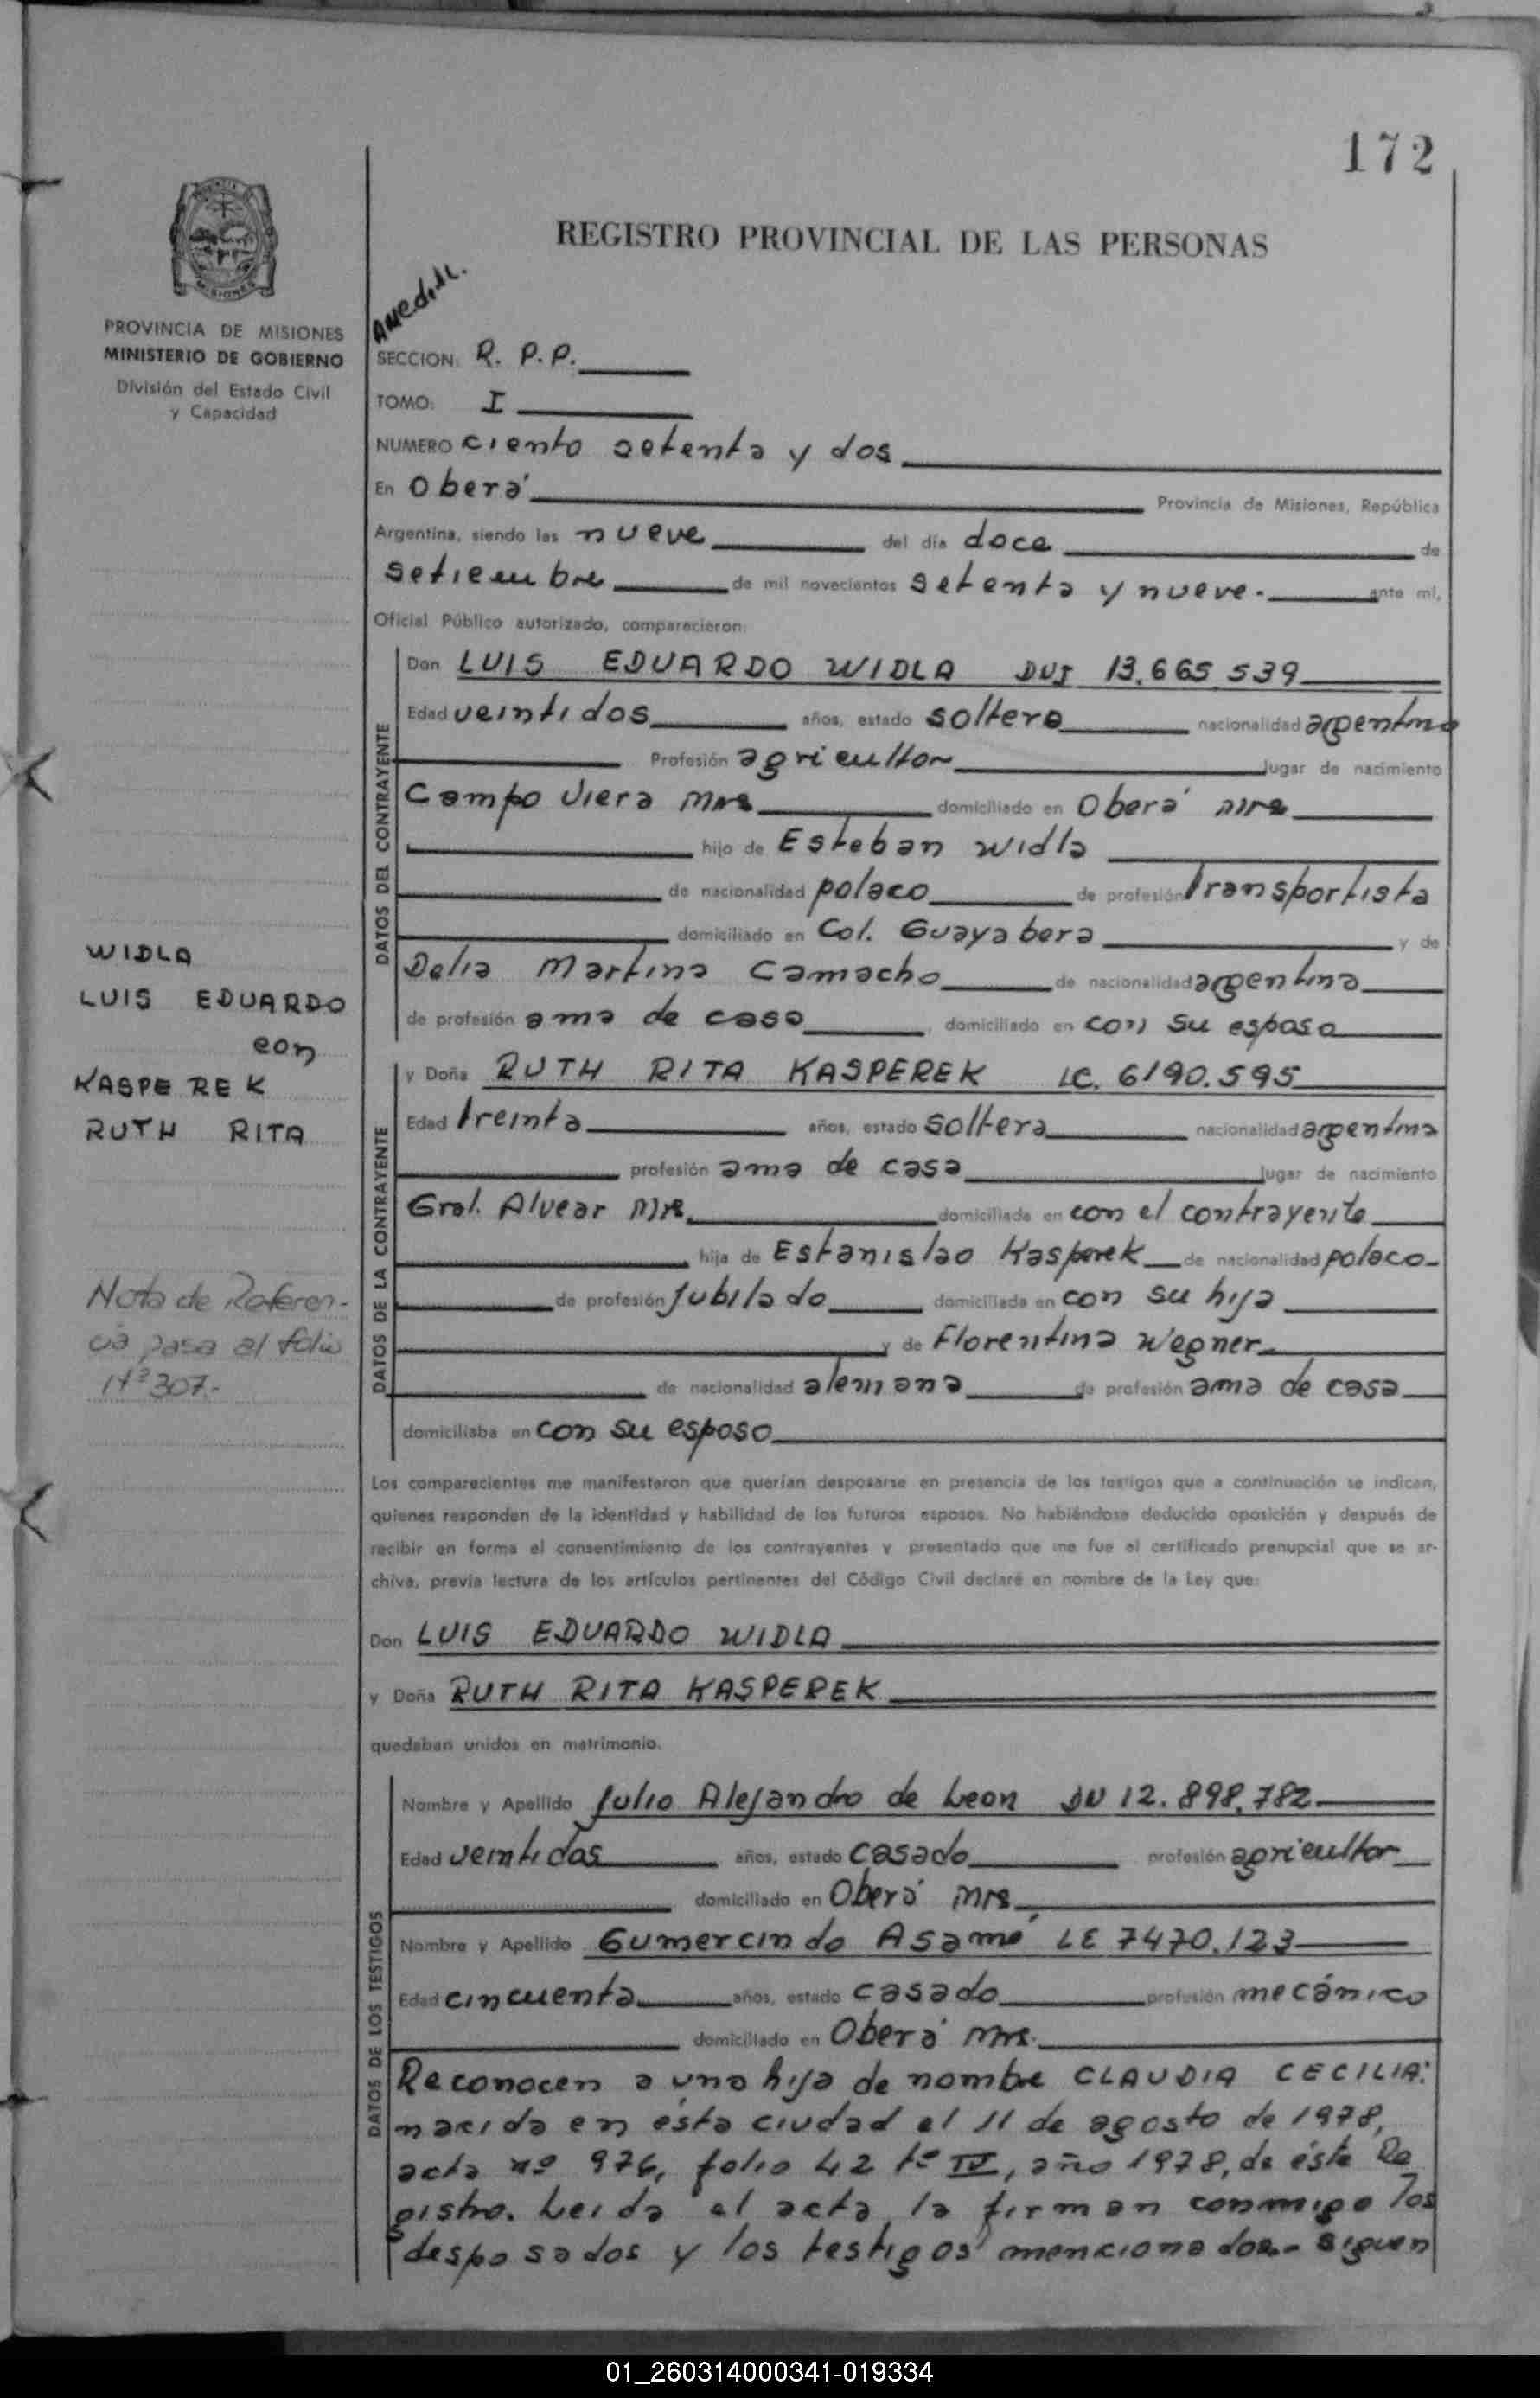 172
REGISTRO PROVINCIAL DE LAS PERSONAS
MISIONES
PROVINCIA DE MISIONES
MINISTERIO DE GOBIERNO
División del Estado Civil
y Capacidad
SECCION: R. P. P.
TOMO: I
NUMERO ciento setenta y dos
En Oberá Provincia de Misiones, República
Argentina, siendo las nueve del día doce de
setiembre de mil novecientos setenta y nueve.- ante mí,
Oficial Público autorizado, comparecieron:
DATOS DEL CONTRAYENTE
Don LUIS EDUARDO WIDLA DUI 13.665.539
Edad veintidos años, estado soltero nacionalidad argentino
Profesión agricultor lugar de nacimiento
Campo Viera Mnes domiciliado en Oberá Mnes
hijo de Esteban Widla
de nacionalidad polaco de profesión transportista
domiciliado en Col. Guayabera y de
Delia Martina Camacho de nacionalidad argentina
de profesión ama de casa, domiciliado en con su esposo
WIDLA
LUIS EDUARDO
con
KASPEREK
RUTH RITA
DATOS DE LA CONTRAYENTE
y Doña RUTH RITA KASPEREK LC. 6190.595
Edad treinta años, estado soltera nacionalidad argentina
profesión ama de casa lugar de nacimiento
Gral. Alvear Mnes domiciliada en con el contrayente
hija de Estanislao Kasperek de nacionalidad polaco-
de profesión Jubilado domiciliada en con su hija
y de Florentina Wegner
de nacionalidad alemana de profesión ama de casa
domiciliaba en con su esposo
Nota de Referen-
cia pasa al folio
Nº 307.-
Los comparecientes me manifestaron que querían desposarse en presencia de los testigos que a continuación se indican,
quienes responden de la identidad y habilidad de los futuros esposos. No habiéndose deducido oposición y después de
recibir en forma el consentimiento de los contrayentes y presentado que me fue el certificado prenupcial que se ar-
chiva, previa lectura de los artículos pertinentes del Código Civil declaré en nombre de la Ley que:
Don LUIS EDUARDO WIDLA
y Doña RUTH RITA KASPEREK
quedaban unidos en matrimonio.
DATOS DE LOS TESTIGOS
Nombre y Apellido Julio Alejandro de Leon DU 12.898.782
Edad veintidos años, estado casado profesión agricultor
domiciliado en Oberá Mnes
Nombre y Apellido Gumercindo Asamé LE 7470.123
Edad cincuenta años, estado casado profesión mecánico
domiciliado en Oberá Mnes.
Reconocen a una hija de nombre CLAUDIA CECILIA:
nacida en ésta ciudad el 11 de agosto de 1978,
acta nº 976, folio 42 tº IV, año 1978, de éste Re
gistro. Leida el acta, la firman conmigo los
desposados y los testigos mencionados.- Siguen
01_260314000341-019334